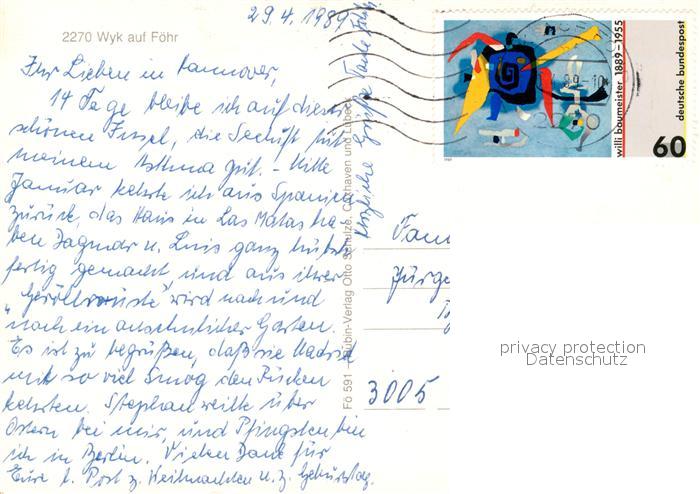 29.4.1989
2270 Wyk auf Föhr
Ihr Lieben in Hannover,
14 Tage bleibe ich auf dieser
schönen Insel, die Seeluft tut
meinem Asthma gut. - Mitte
Januar kehrte ich aus Spanien
zurück, das Haus in Las Matas ha-
ben Dagmar u. Luis ganz hübsch
fertig gemacht und aus ihrer
„Geröllwüste" wird nach und
nach ein ansehnlicher Garten.
Es ist zu begrüßen, daß sie Madrid
mit so viel Smog den Rücken
kehrten. Stephan weilte über
Ostern bei mir, und Pfingsten bin
ich in Berlin. Vielen Dank für
Eure l. Post z. Weihnachten u. z. Geburtstag.
Herzliche Grüße Tante
Fö 591 Schöning Verlag Otto Schulze, Cuxhaven und Lübeck
willi baumeister 1889-1955
deutsche bundespost
60
Fam
Jürge
3005
privacy protection
Datenschutz